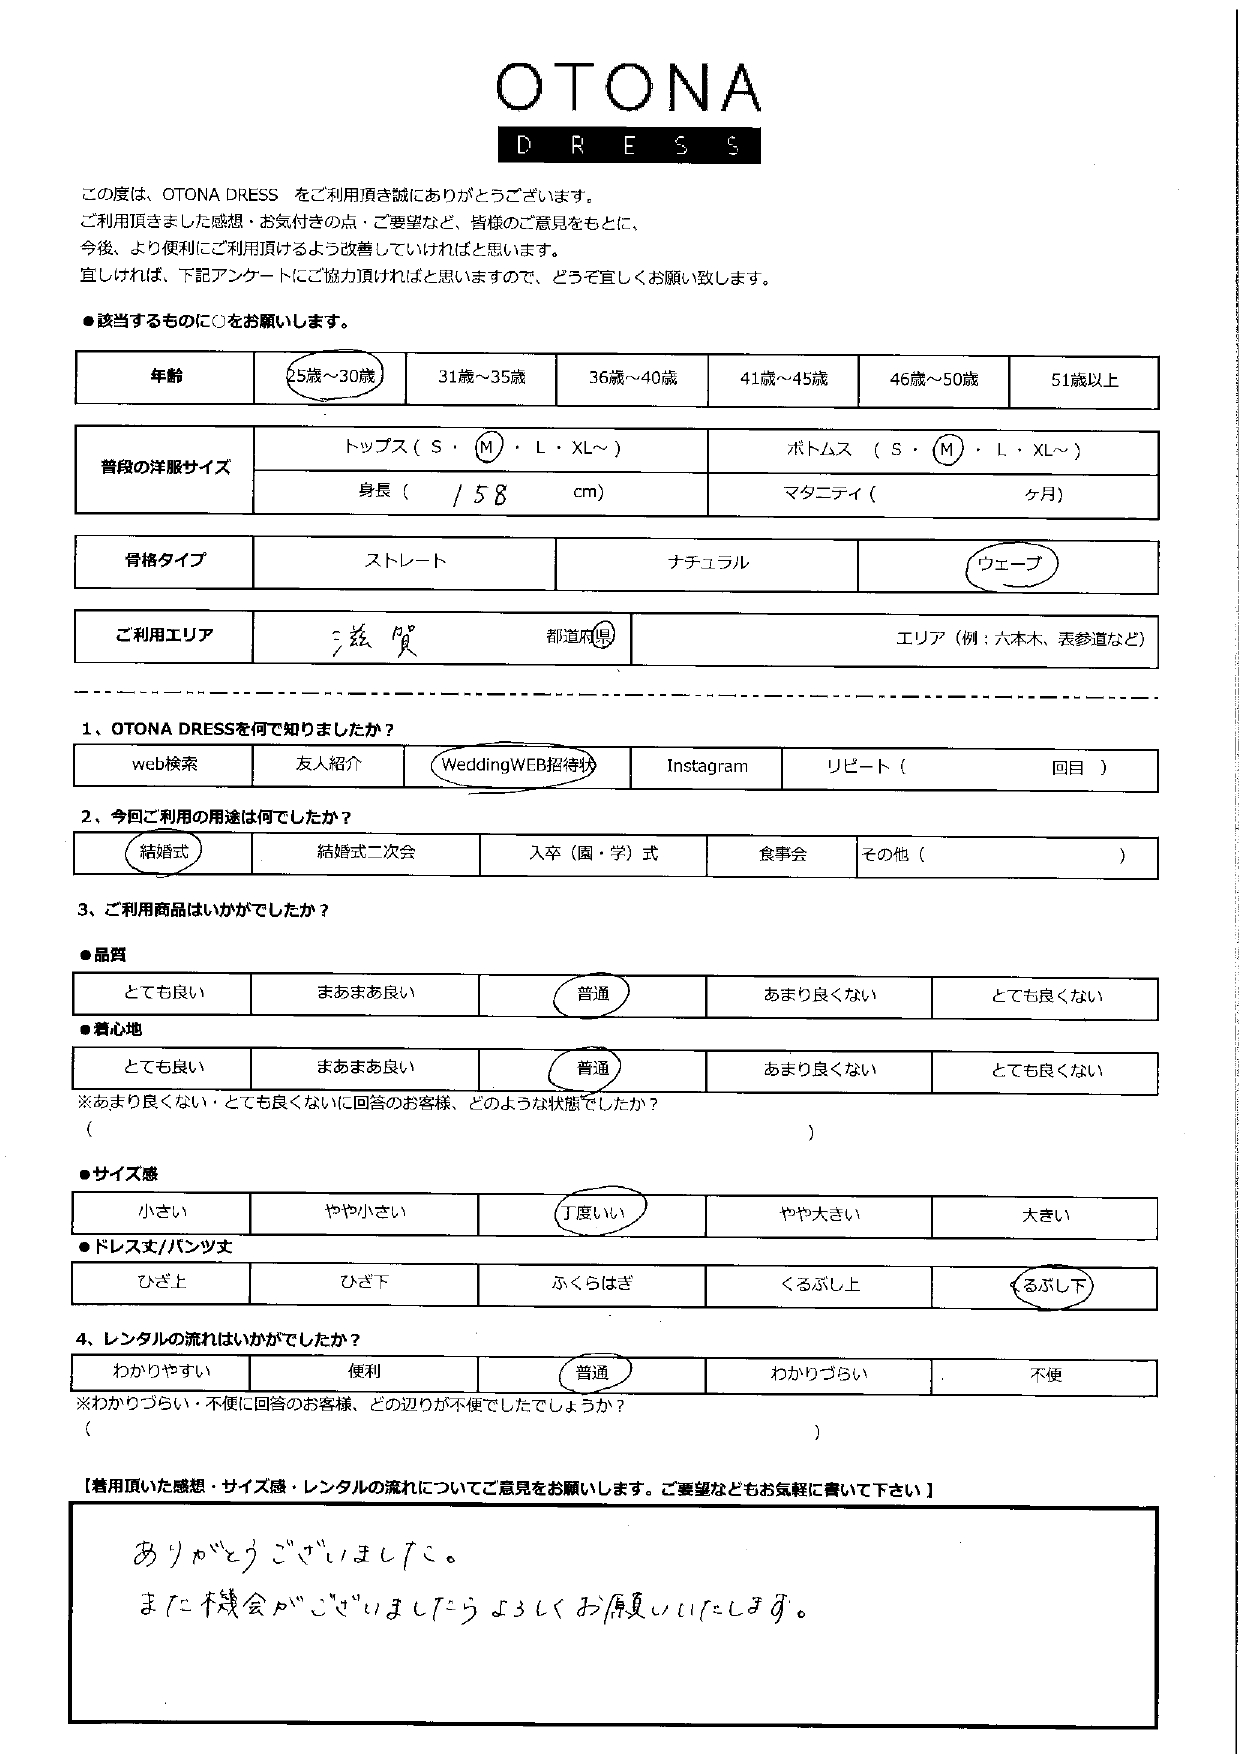 OTONA
DRESS
この度は、OTONA DRESS をご利用頂き誠にありがとうございます。
ご利用頂きました感想・お気付きの点・ご要望など、皆様のご意見をもとに、
今後、より便利にご利用頂けるよう改善していければと思います。
宜しければ、下記アンケートにご協力頂ければと思いますので、どうぞ宜しくお願い致します。
●該当するものに○をお願いします。
年齢 25歳～30歳 31歳～35歳 36歳～40歳 41歳～45歳 46歳～50歳 51歳以上
普段の洋服サイズ
トップス ( S ・ M ・ L ・ XL～ ) ボトムス ( S ・ M ・ L ・ XL～ )
身長 ( 158 cm) マタニティ ( ケ月)
骨格タイプ ストレート ナチュラル ウェーブ
ご利用エリア 滋賀 都道府県 エリア（例：六本木、表参道など）
1、OTONA DRESSを何で知りましたか？
web検索 友人紹介 WeddingWEB招待状 Instagram リピート ( 回目 )
2、今回ご利用の用途は何でしたか？
結婚式 結婚式二次会 入卒（園・学）式 食事会 その他 ( )
3、ご利用商品はいかがでしたか？
●品質
とても良い まあまあ良い 普通 あまり良くない とても良くない
●着心地
とても良い まあまあ良い 普通 あまり良くない とても良くない
※あまり良くない・とても良くないに回答のお客様、どのような状態でしたか？
( )
●サイズ感
小さい やや小さい 丁度いい やや大きい 大きい
●ドレス丈/パンツ丈
ひざ上 ひざ下 ふくらはぎ くるぶし上 くるぶし下
4、レンタルの流れはいかがでしたか？
わかりやすい 便利 普通 わかりづらい 不便
※わかりづらい・不便に回答のお客様、どの辺りが不便でしたでしょうか？
( )
【着用頂いた感想・サイズ感・レンタルの流れについてご意見をお願いします。ご要望などもお気軽に書いて下さい】
ありがとうございました。
また機会がございましたらよろしくお願いいたします。